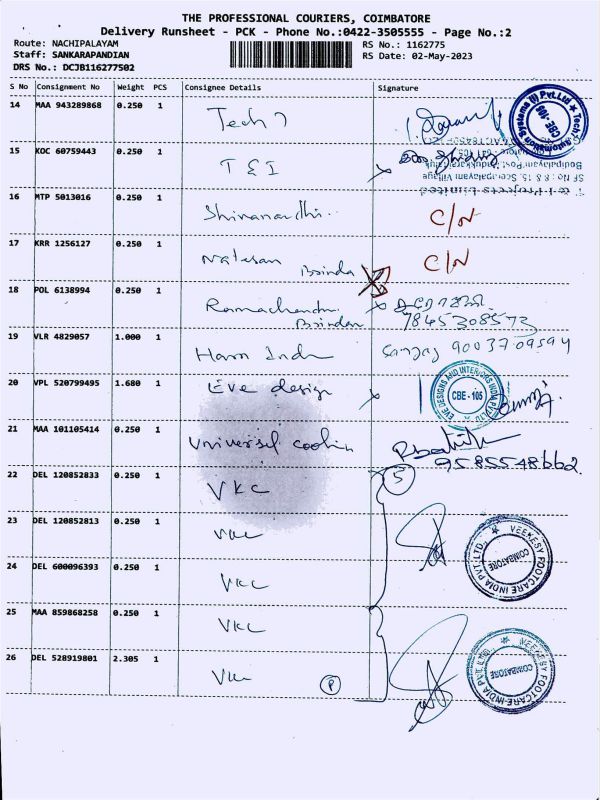 THE PROFESSIONAL COURIERS, COIMBATORE
Delivery Runsheet - PCK - Phone No.:0422-3505555 - Page No.:2
Route: NACHIPALAYAM
RS No.: 1162775
Staff: SANKARAPANDIAN
RS Date: 02-May-2023
DRS No.: DCJB116277502
S No Consignment No Weight PCS Consignee Details Signature
14 MAA 943289868 0.250 1 Tech 7
Tech7 Automation Systems (I) Pvt.Ltd
CBE-105
15 KOC 60759443 0.250 1 T & I
T & I Projects Limited
SF No : 8 & 15, Seerapalayam Village
16 MTP 5013016 0.250 1 Shivanandhi.. C/N
17 KRR 1256127 0.250 1 Natesan C/N
18 POL 6138994 0.250 1 Ramachandran
7845308573
19 VLR 4829057 1.000 1 Ham Indu Sanjay 9003709594
20 VPL 520799495 1.680 1 Eve design
EVE DESIGNS AND INTERIORS INDIA PVT LTD
CBE - 105
21 MAA 101105414 0.250 1 Universal coolin
9585548662
22 DEL 120852833 0.250 1 VKC 5
23 DEL 120852813 0.250 1 VKC
VEEKESY FOOTCARE INDIA PVT. LTD.
COIMBATORE
24 DEL 600096393 0.250 1 VKC
25 MAA 859868258 0.250 1 VKC
26 DEL 528919801 2.305 1 VKC P
VEEKESY FOOTCARE INDIA PVT. LTD.
COIMBATORE